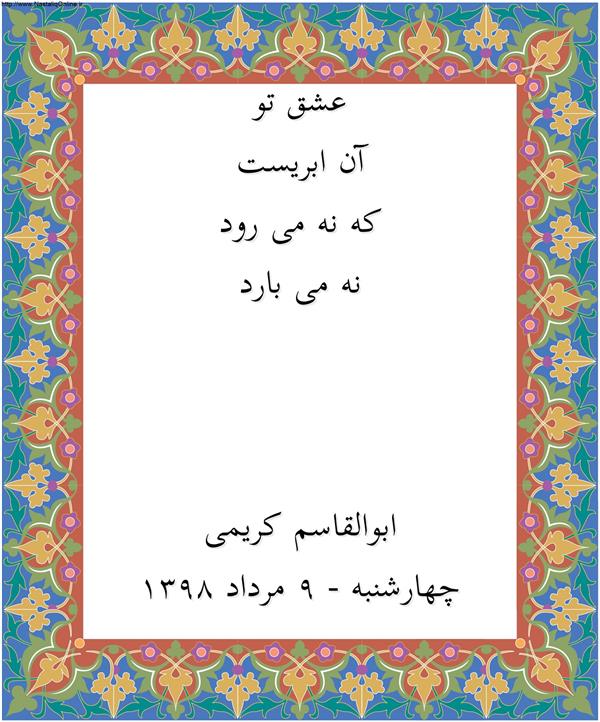 http://www.NastaliqOnline.ir
عشق تو
آن ابریست
که نه می رود
نه می بارد
ابوالقاسم کریمی
چهارشنبه - ۹ مرداد ۱۳۹۸